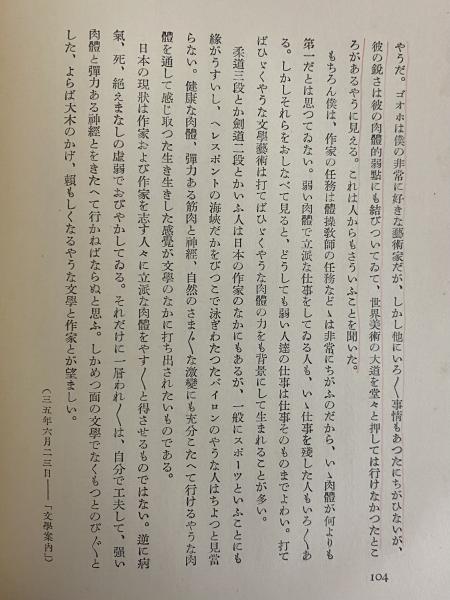 やうだ。ゴオホは僕の非常に好きな藝術家だが、しかし他にいろ〱事情もあつたにちがひないが、
彼の鋭さは彼の肉體的弱點にも結びついてゐて、世界美術の大道を堂々と押しては行けなかつたとこ
ろがあるやうに見える。これは人からもさういふことを聞いた。
もちろん僕は、作家の任務は體操敎師の任務などゝは非常にちがふのだから、いゝ肉體が何よりも
第一だとは思つてゐない。弱い肉體で立派な仕事をしてゐる人も、いゝ仕事を殘した人もいろ〱あ
る。しかしそれらをおしなべて見ると、どうしても弱い人達の仕事は仕事そのものまでよわい。打て
ばひゞくやうな文學藝術は打てばひゞくやうな肉體の力をも背景にして生まれることが多い。
柔道三段とか劍道二段とかいふ人は日本の作家のなかにもあるが、一般にスポーツといふことにも
緣がうすいし、ヘレスポントの海峽だかをびつこで泳ぎわたつたバイロンのやうな人はちよつと見當
らない。健康な肉體、彈力ある筋肉と神經、自然のさま〲な激變にも充分こたへて行けるやうな肉
體を通して感じ取つた生き生きした感覺が文學のなかに打ち出されたいものである。
日本の現狀は作家および作家を志す人々に立派な肉體をやす〱と得させるものではない。逆に病
氣、死、絕えまなしの虛弱でおびやかしてゐる。それだけに一層われ〱は、自分で工夫して、强い
肉體と彈力ある神經とをきたへて行かねばならぬと思ふ。しかめつ面の文學でなくもつとのび〱と
した、よらば大木のかげ、賴もしくなるやうな文學と作家とが望ましい。
（三五年六月二三日——「文學案內」）
104